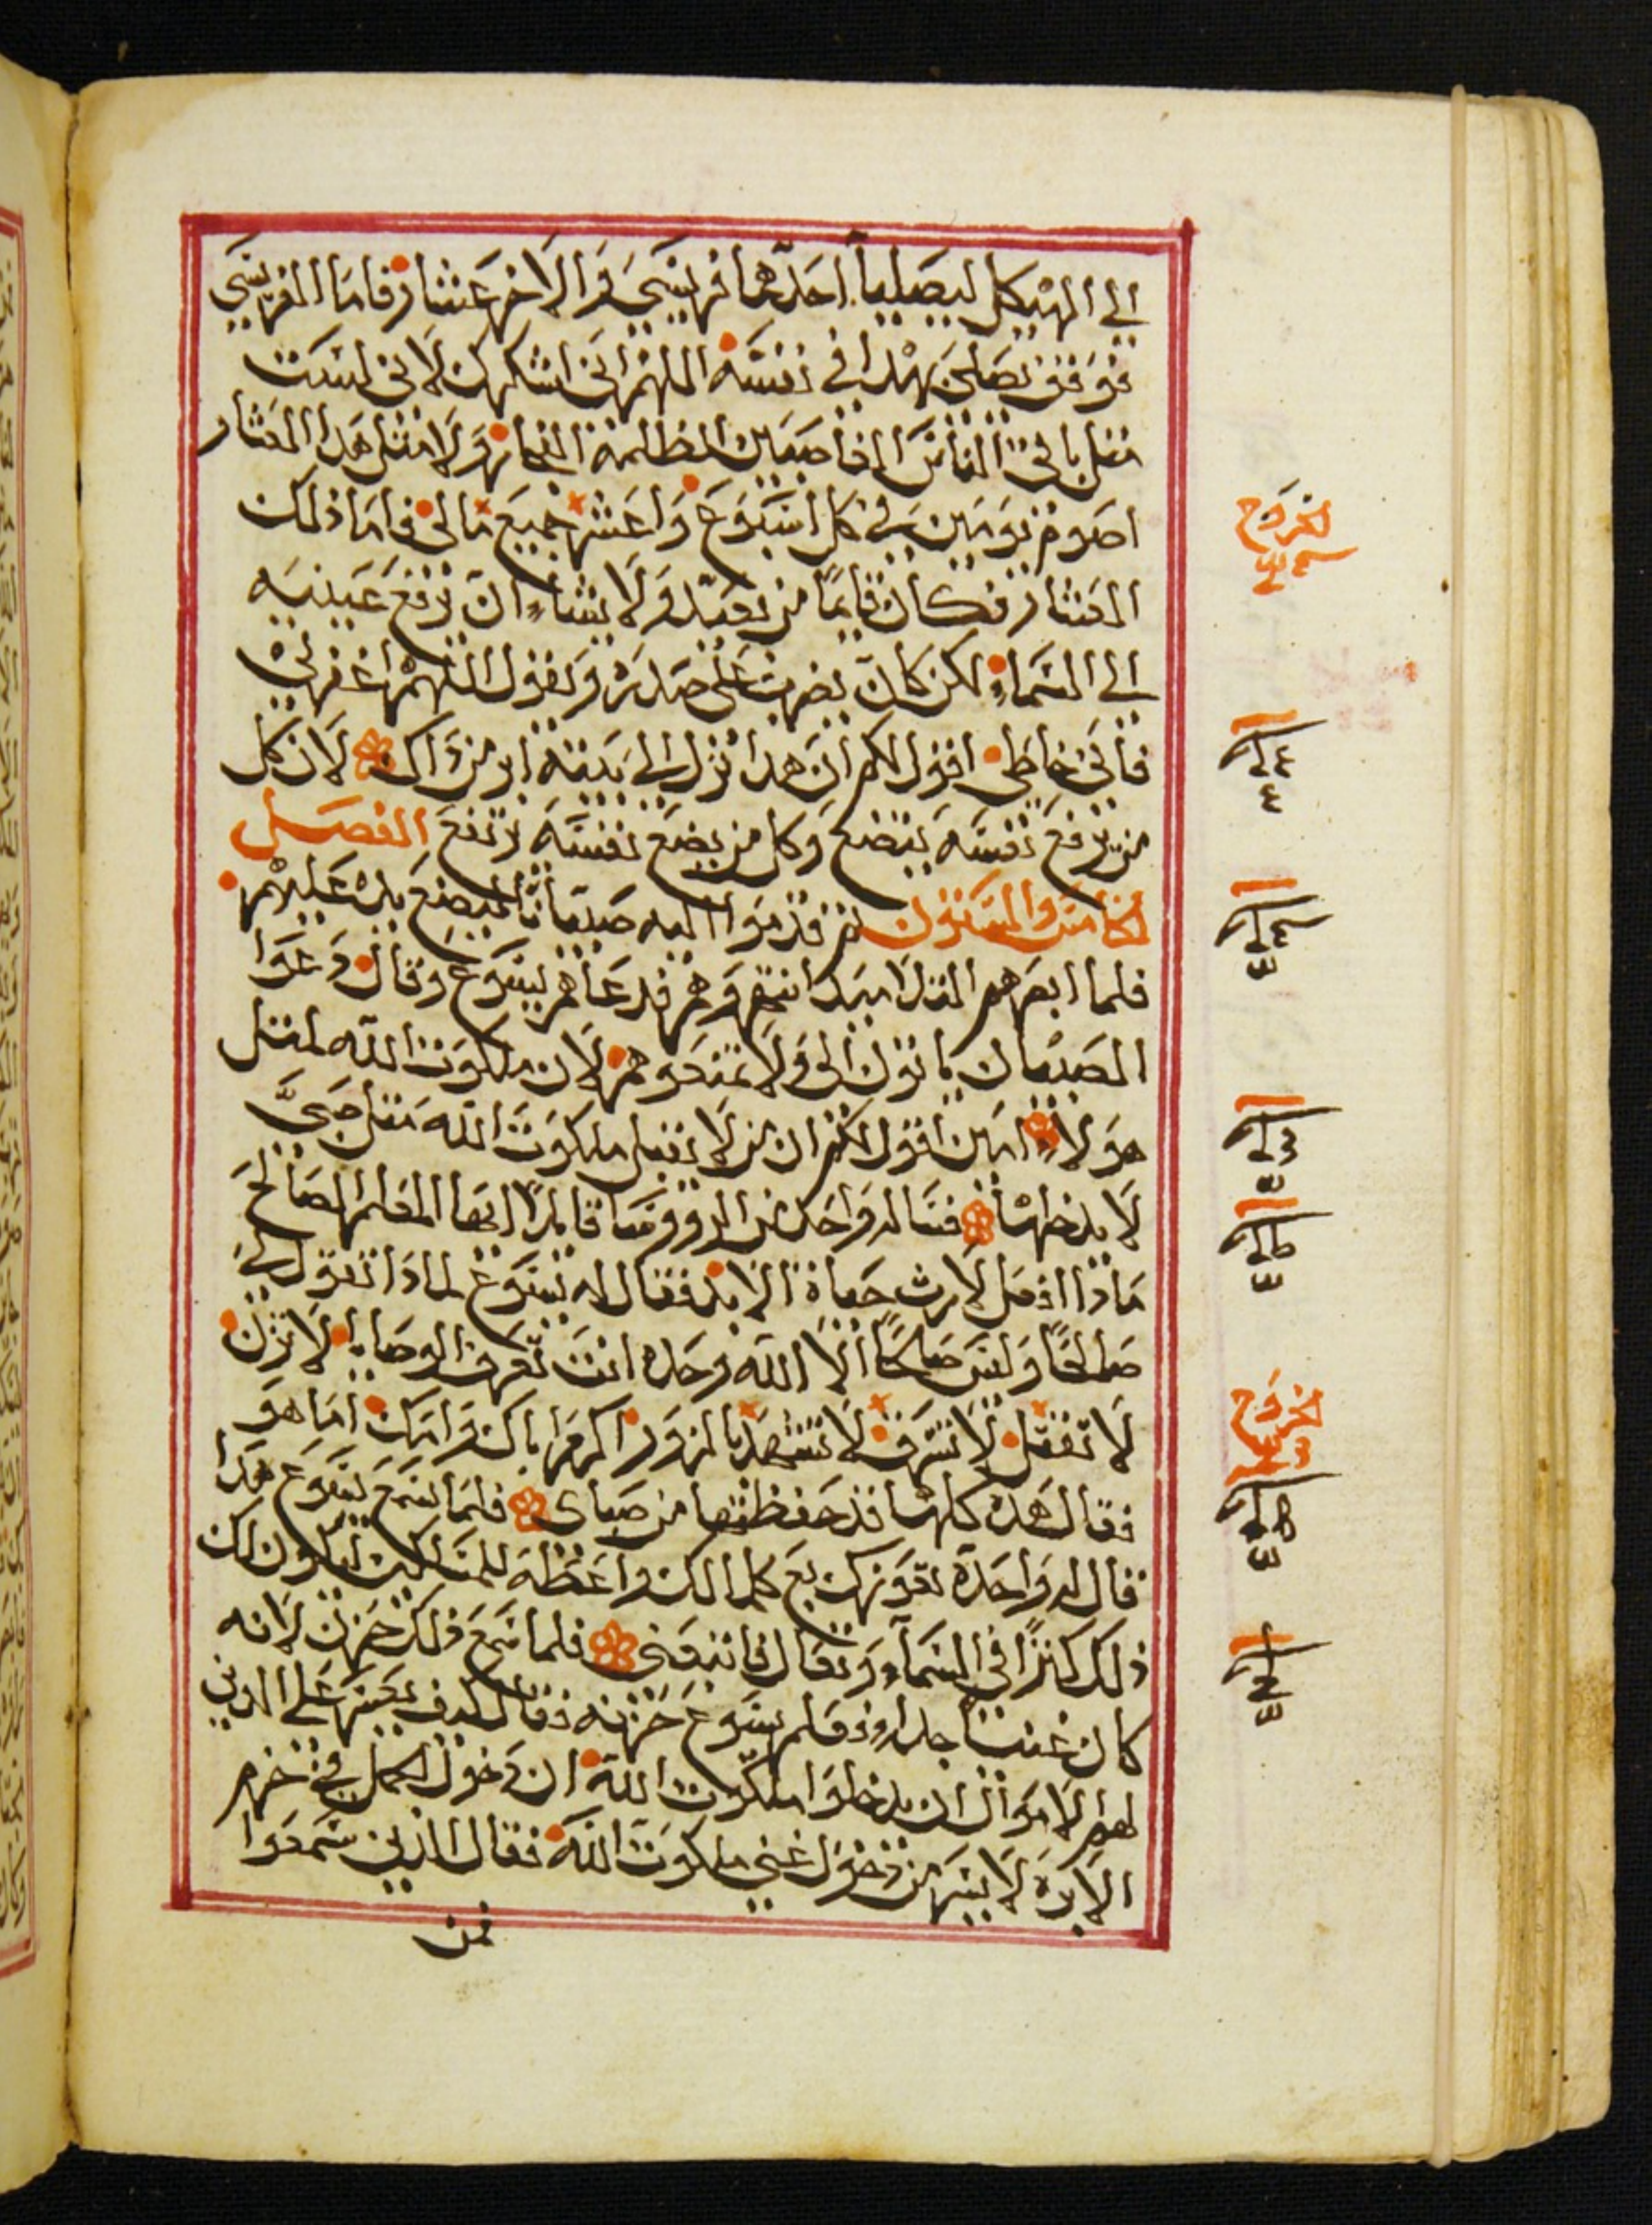 الي الهيكل ليصليا احدهما فريسي والاخر عشار فاما الفريسي
فوقف يصلي بهدا في نفسه اللهم اني اشكرك لاني لست
مثل باقي الناس الغاصبين الظلمة الفجار ولا مثل هدا العشار
اصوم يومين في كل اسبوع واعشر جميع مالي فاما ذلك
العشار فكان قايما من بعيد ولا يشاء ان يرفع عينيه
الي السماء لكن كان يضرب على صدره ويقول اللهم اغفر لي
فاني خاطي اقول لكم ان هدا نزل الي بيته ابر من ذاك لان كل
من يرفع نفسه يتضع وكل من يضع نفسه يرتفع الفصل
الخامس والستون ثم قدموا اليه صبيانا ليضع يده عليهم
فلما ابصرهم التلاميد انتهروهم فدعاهم يسوع وقال دعوا
الصبيان ياتون الي ولا تمنعوهم لان ملكوت الله لمثل
هولاء امين اقول لكم ان من لا يقبل ملكوت الله مثل صبي
لا يدخلها فساله واحد من الرووسا قايلا ايها المعلم الصالح
مادا افعل لارث حياة الابد فقال له يسوع لمادا تقول لي
صالحا وليس صالحا الا الله وحده انت تعرف الوصايا لا تزن
لا تقتل لا تسرق لا تشهد بالزور اكرم اباك وامك اما هو
فقال هده كلها قد حفظتها من صباي فلما سمع يسوع هدا
قال له واحدة تعوزك بع كلما لك واعطه للمساكين ليكون لك
ذلك كنزا في السماء وتعال فاتبعني فلما سمع ذلك حزن لانه
كان غنيا جدا فعلم يسوع حزنه فقال كيف يعسر على الدين
لهم الاموال ان يدخلوا ملكوت الله ان دخول الجمل في خرم
الابرة لايسر من دخول غني ملكوت الله فقال الذين سمعوا
فمن
الخروج
الخروج